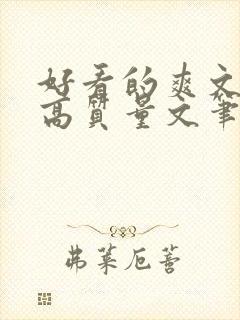 好看的爽文
高质量文笔
弗莱厄蒈